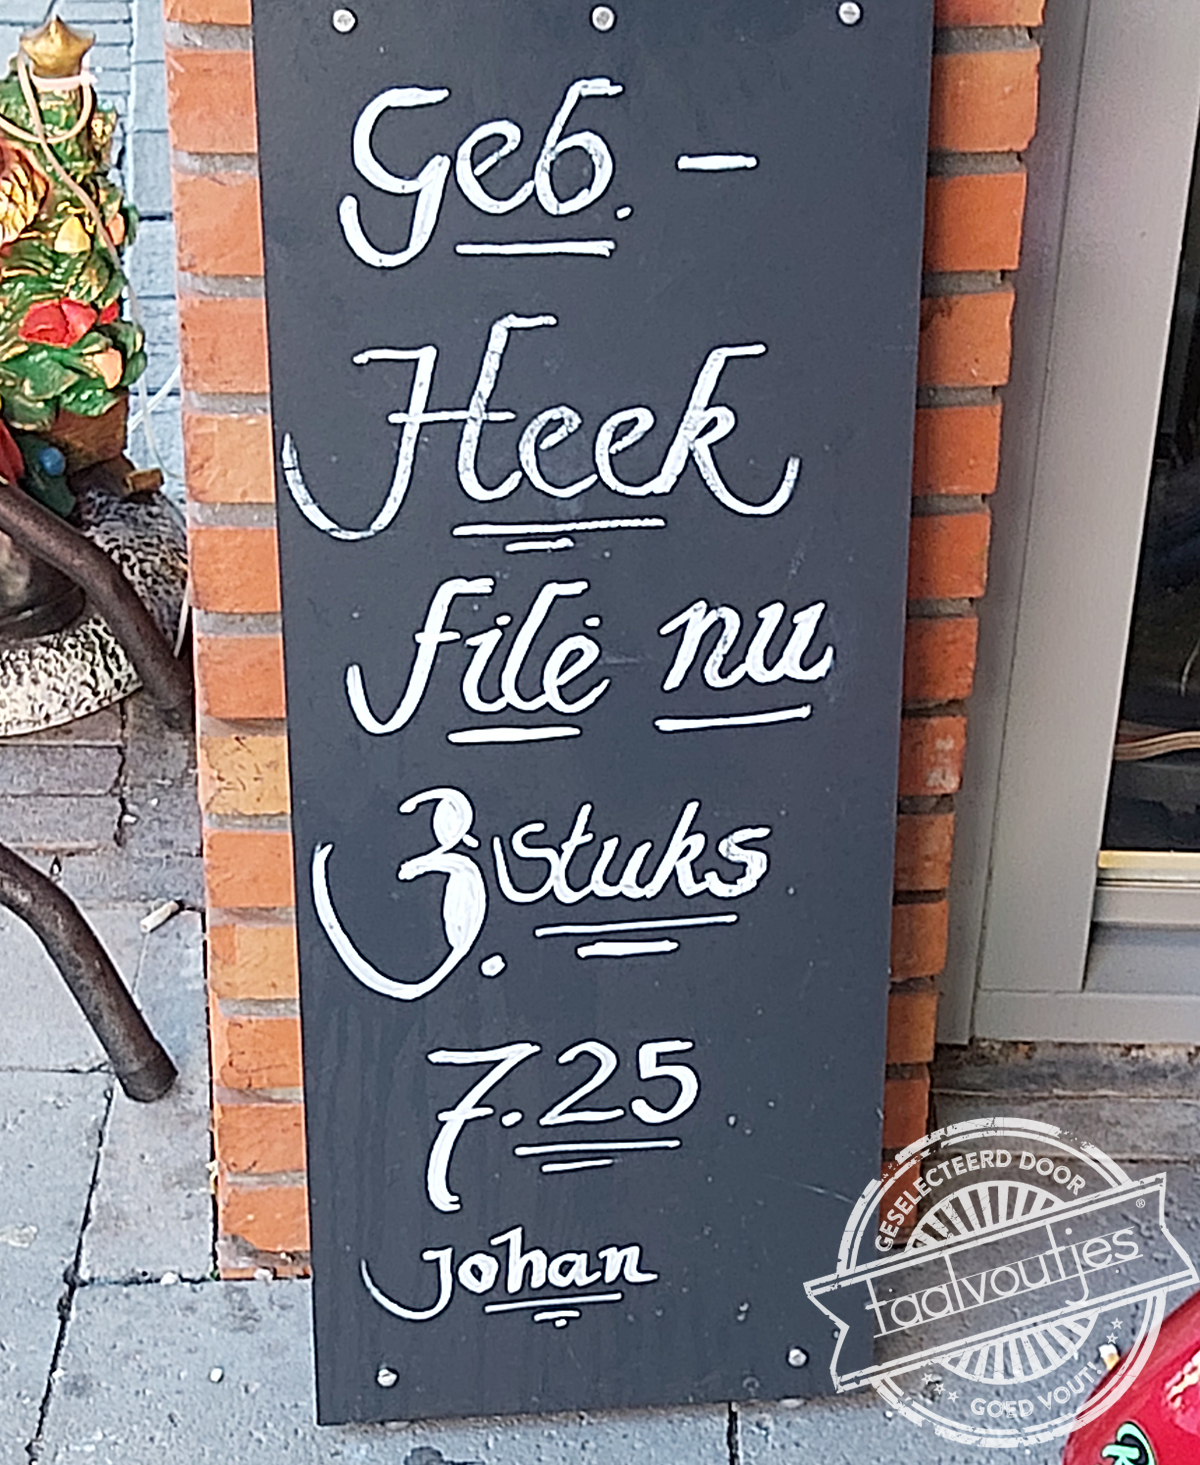 Geb. -
Heek
filė nu
3. stuks
7.25
Johan
GESELECTEERD DOOR
taalvoutjes®
GOED VOUT!